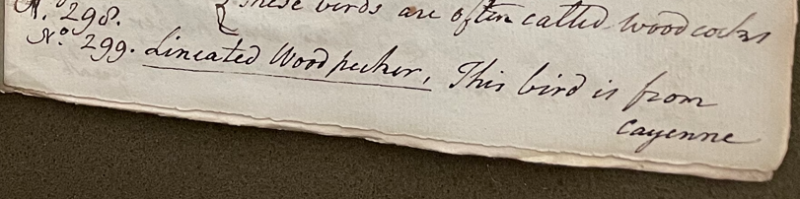 No. 298. { These birds are often called woodcocks
No. 299. Lineated Woodpecker, This bird is from
Cayenne